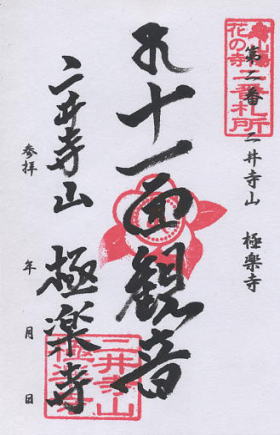 第二番 二井寺山 極楽寺
花の寺
二番札所
十一面観音
二井寺山
極楽寺
参拝
年 月 日
二井寺山
極楽寺